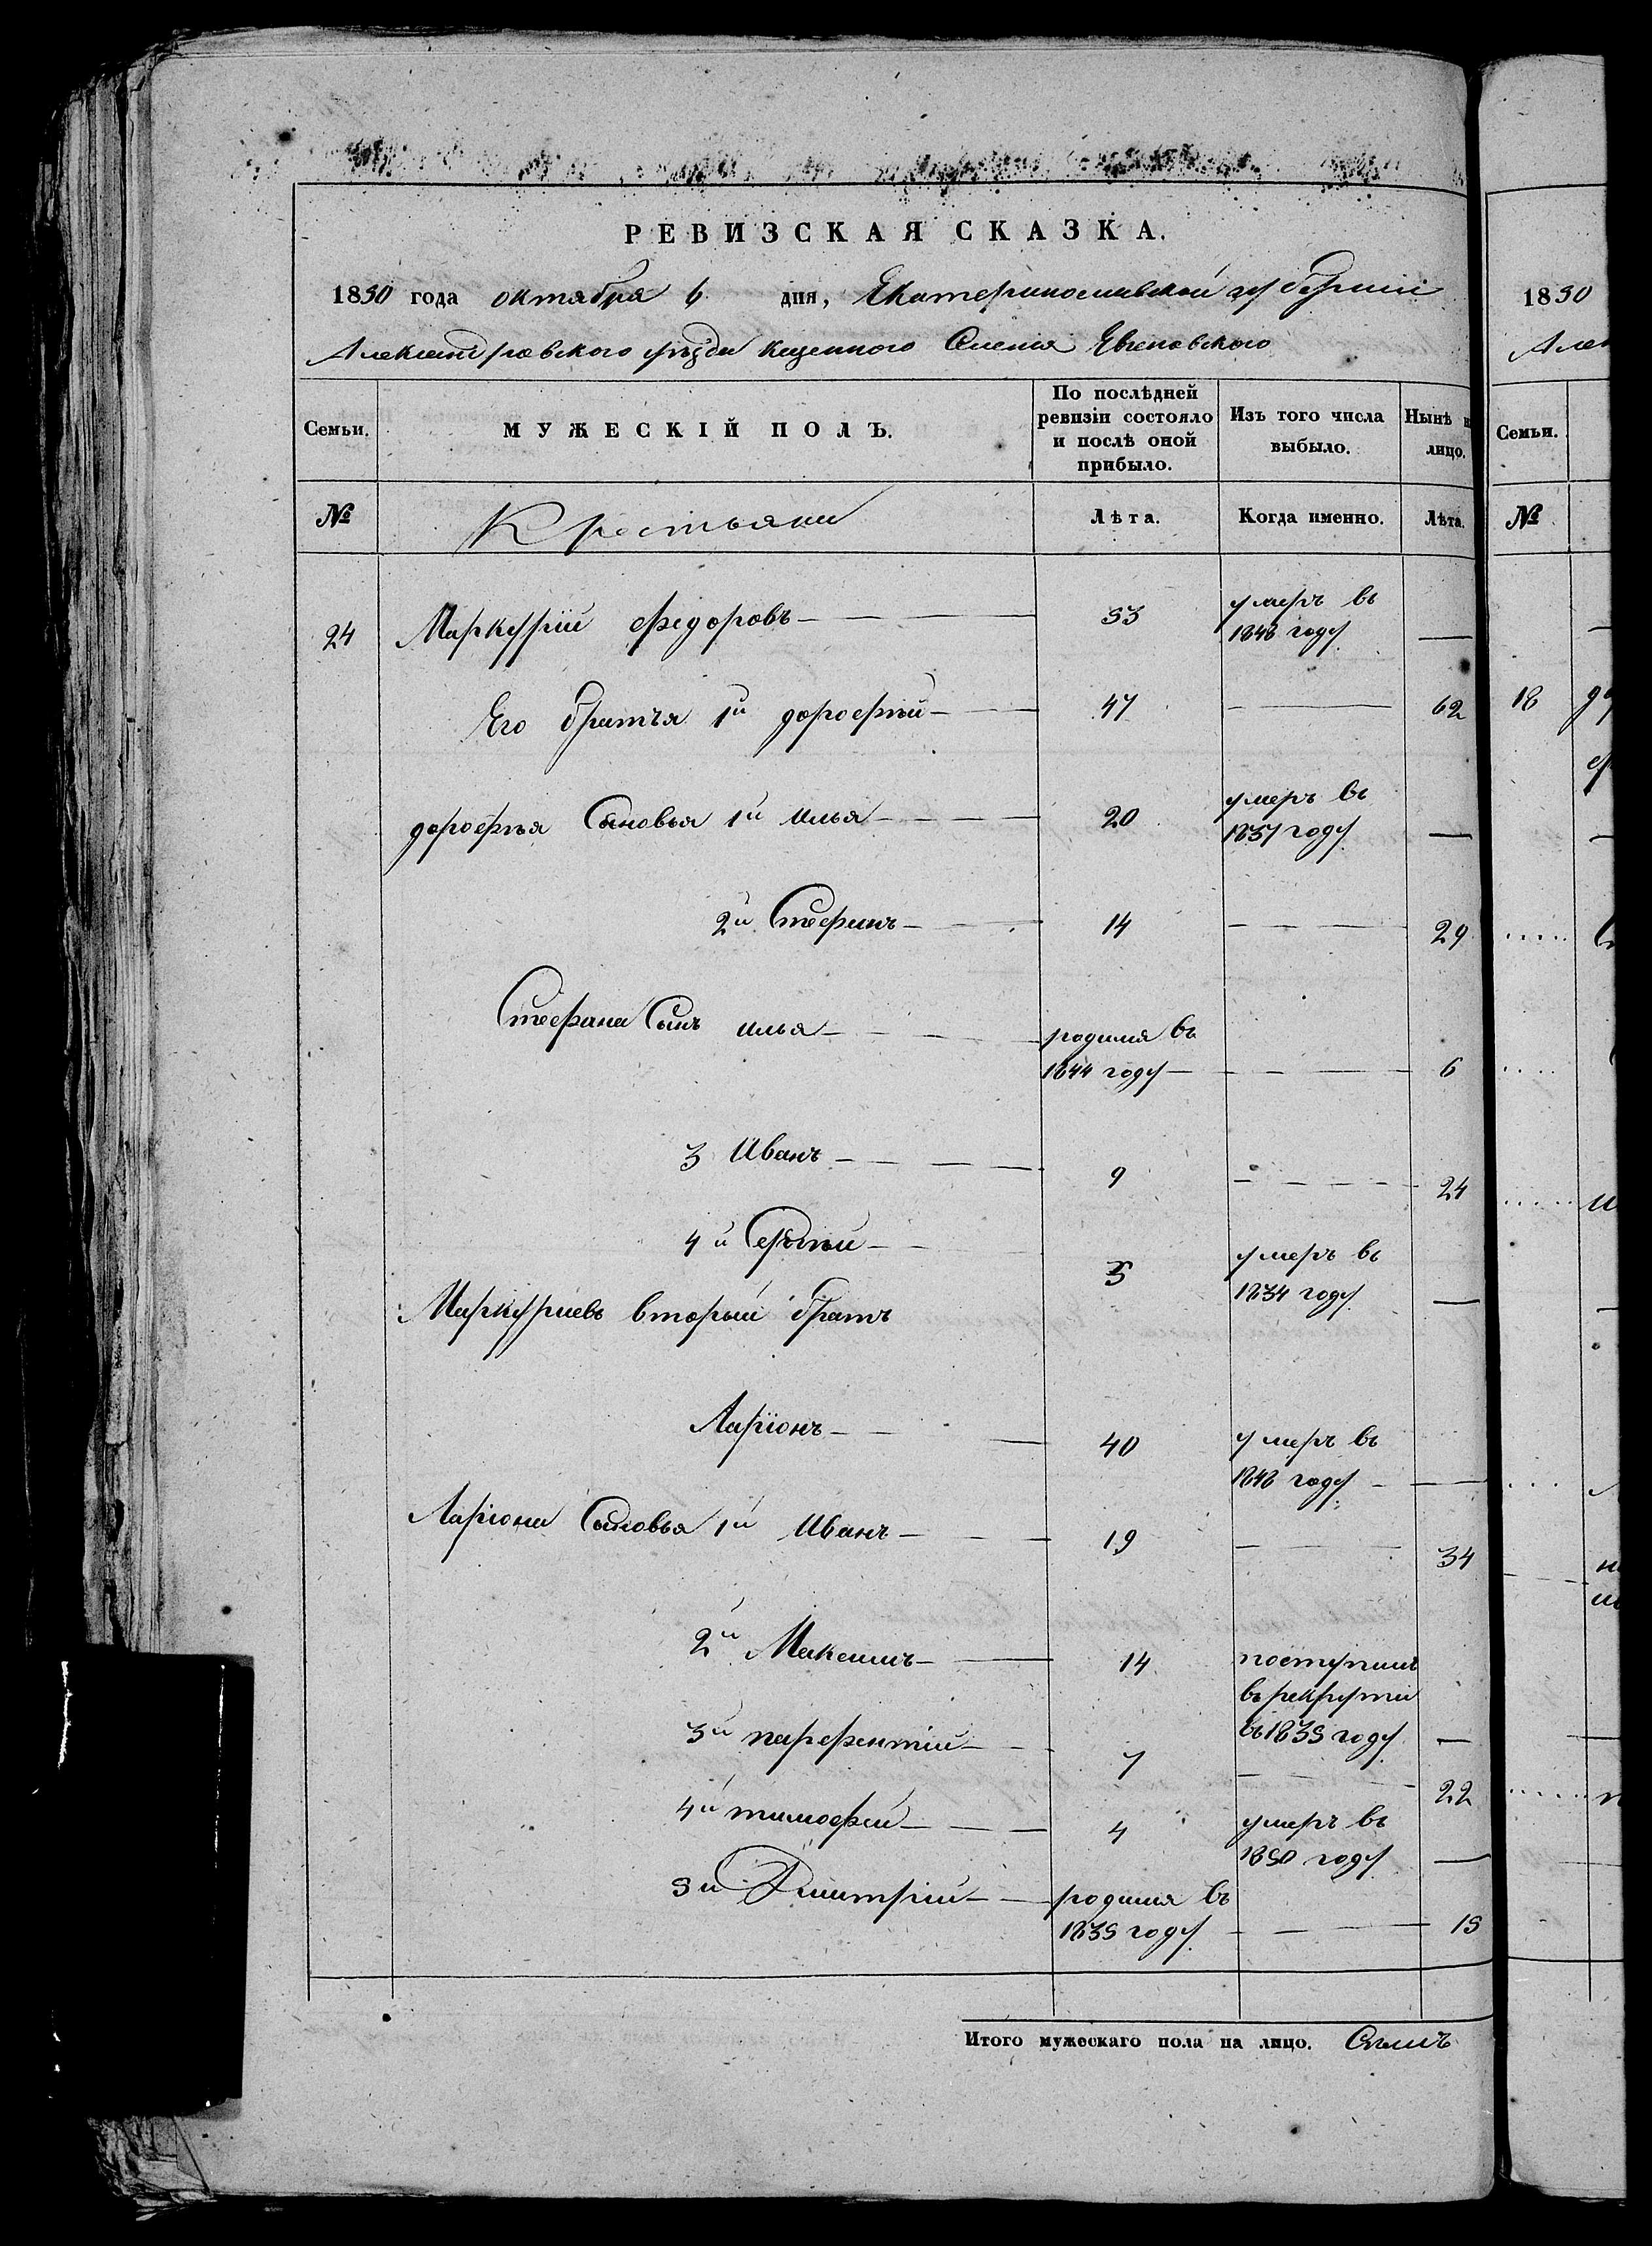 РЕВИЗСКАЯ СКАЗКА.
1850 года октября 6 дня, Екатеринославской губернии
Александровского уѣзда казенного Селения Евгеновского
Семьи. МУЖЕСКІЙ ПОЛЪ. По послѣдней ревизіи состояло и послѣ оной прибыло. Изъ того числа выбыло. Нынѣ н лицо.
№ Крестьяни Лѣта. Когда именно. Лѣта.
24 Маркурій Федоровъ 53 умеръ въ 1848 году —
Его братья 1й дорофей 47 — 62
дорофея Сыновья 1й илья 20 умеръ въ 1837 году —
2й Стефанъ 14 — 29
Стефана Сынъ илья родился въ 1844 году — 6
3 Иванъ 9 — 24
4й Сергѣй 5 умеръ въ 1834 году —
Маркуриевъ вторый братъ
Ларіонъ 40 умеръ въ 1848 году —
Ларіона Сыновья 1й Иванъ 19 — 34
2й Максимъ 14 поступилъ въ рекруты въ 1835 году —
3й парфентий 7 — 22
4й тимофей 4 умеръ въ 1850 году —
5й Дмитрій родился въ 1835 году — 15
Итого мужескаго пола на лицо. Семь
1850
Алек
Семьи.
№
18